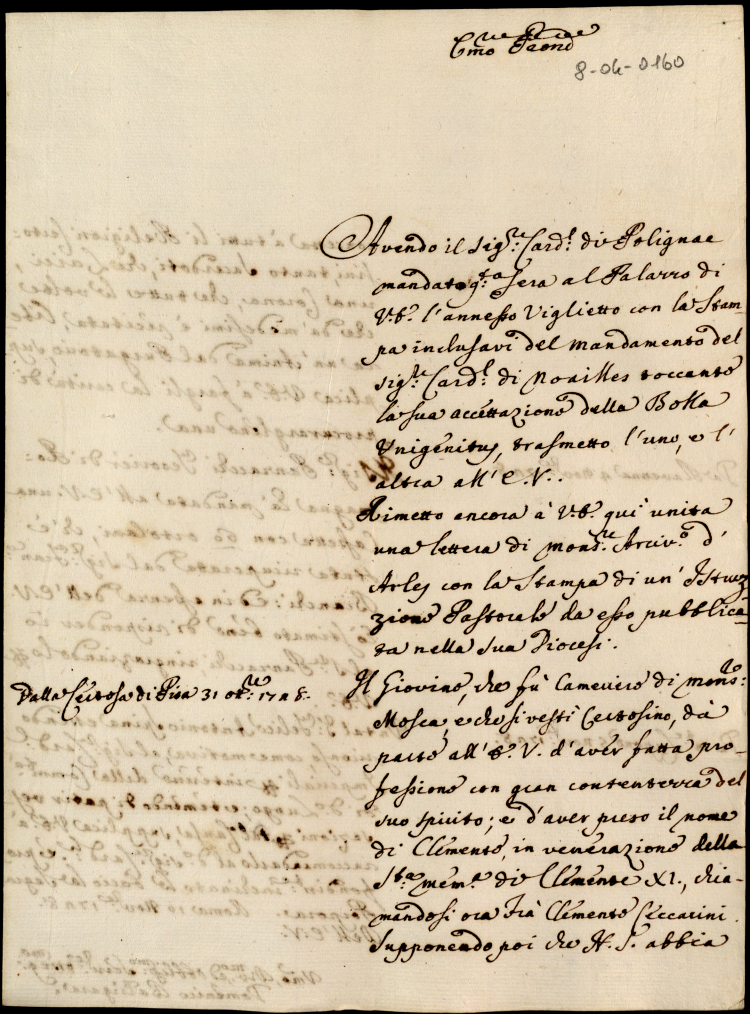 E.mo e R.mo Prone
8-04-0160
Avendo il Sig.re Card.l di Polignac
mandato q.ta sera al Palazzo di
V.E. l'annesso Viglietto con la Stam-
pa inclusavi del mandamento del
Sig.re Card.l di Noailles toccante
la sua accettazione della Bolla
Unigenitus, trasmetto l'uno, e l'
altra all'E.V..
Rimetto ancora à V.E. qui unita
una lettera di Mons.re Arciv.o d'
Arles con la Stampa di un'Istruz-
zione Pastorale da esso pubblica-
ta nella sua Diocesi.
Dalla Certosa di Pisa 31 ott.re 1728.
Il Giovine, che fù Cameriere di Mons.re
Mosca, e che si vesti Certosino, dà
parte all'E.V. d'aver fatta pro-
fessione con gran contentezza del
suo spirito; e d'aver preso il nome
di Clemente, in venerazione della
S.ta mem.a di Clemente XI., chia-
mandosi ora Frà Clemente Ceccarini.
Supponendo poi che N.S. abbia